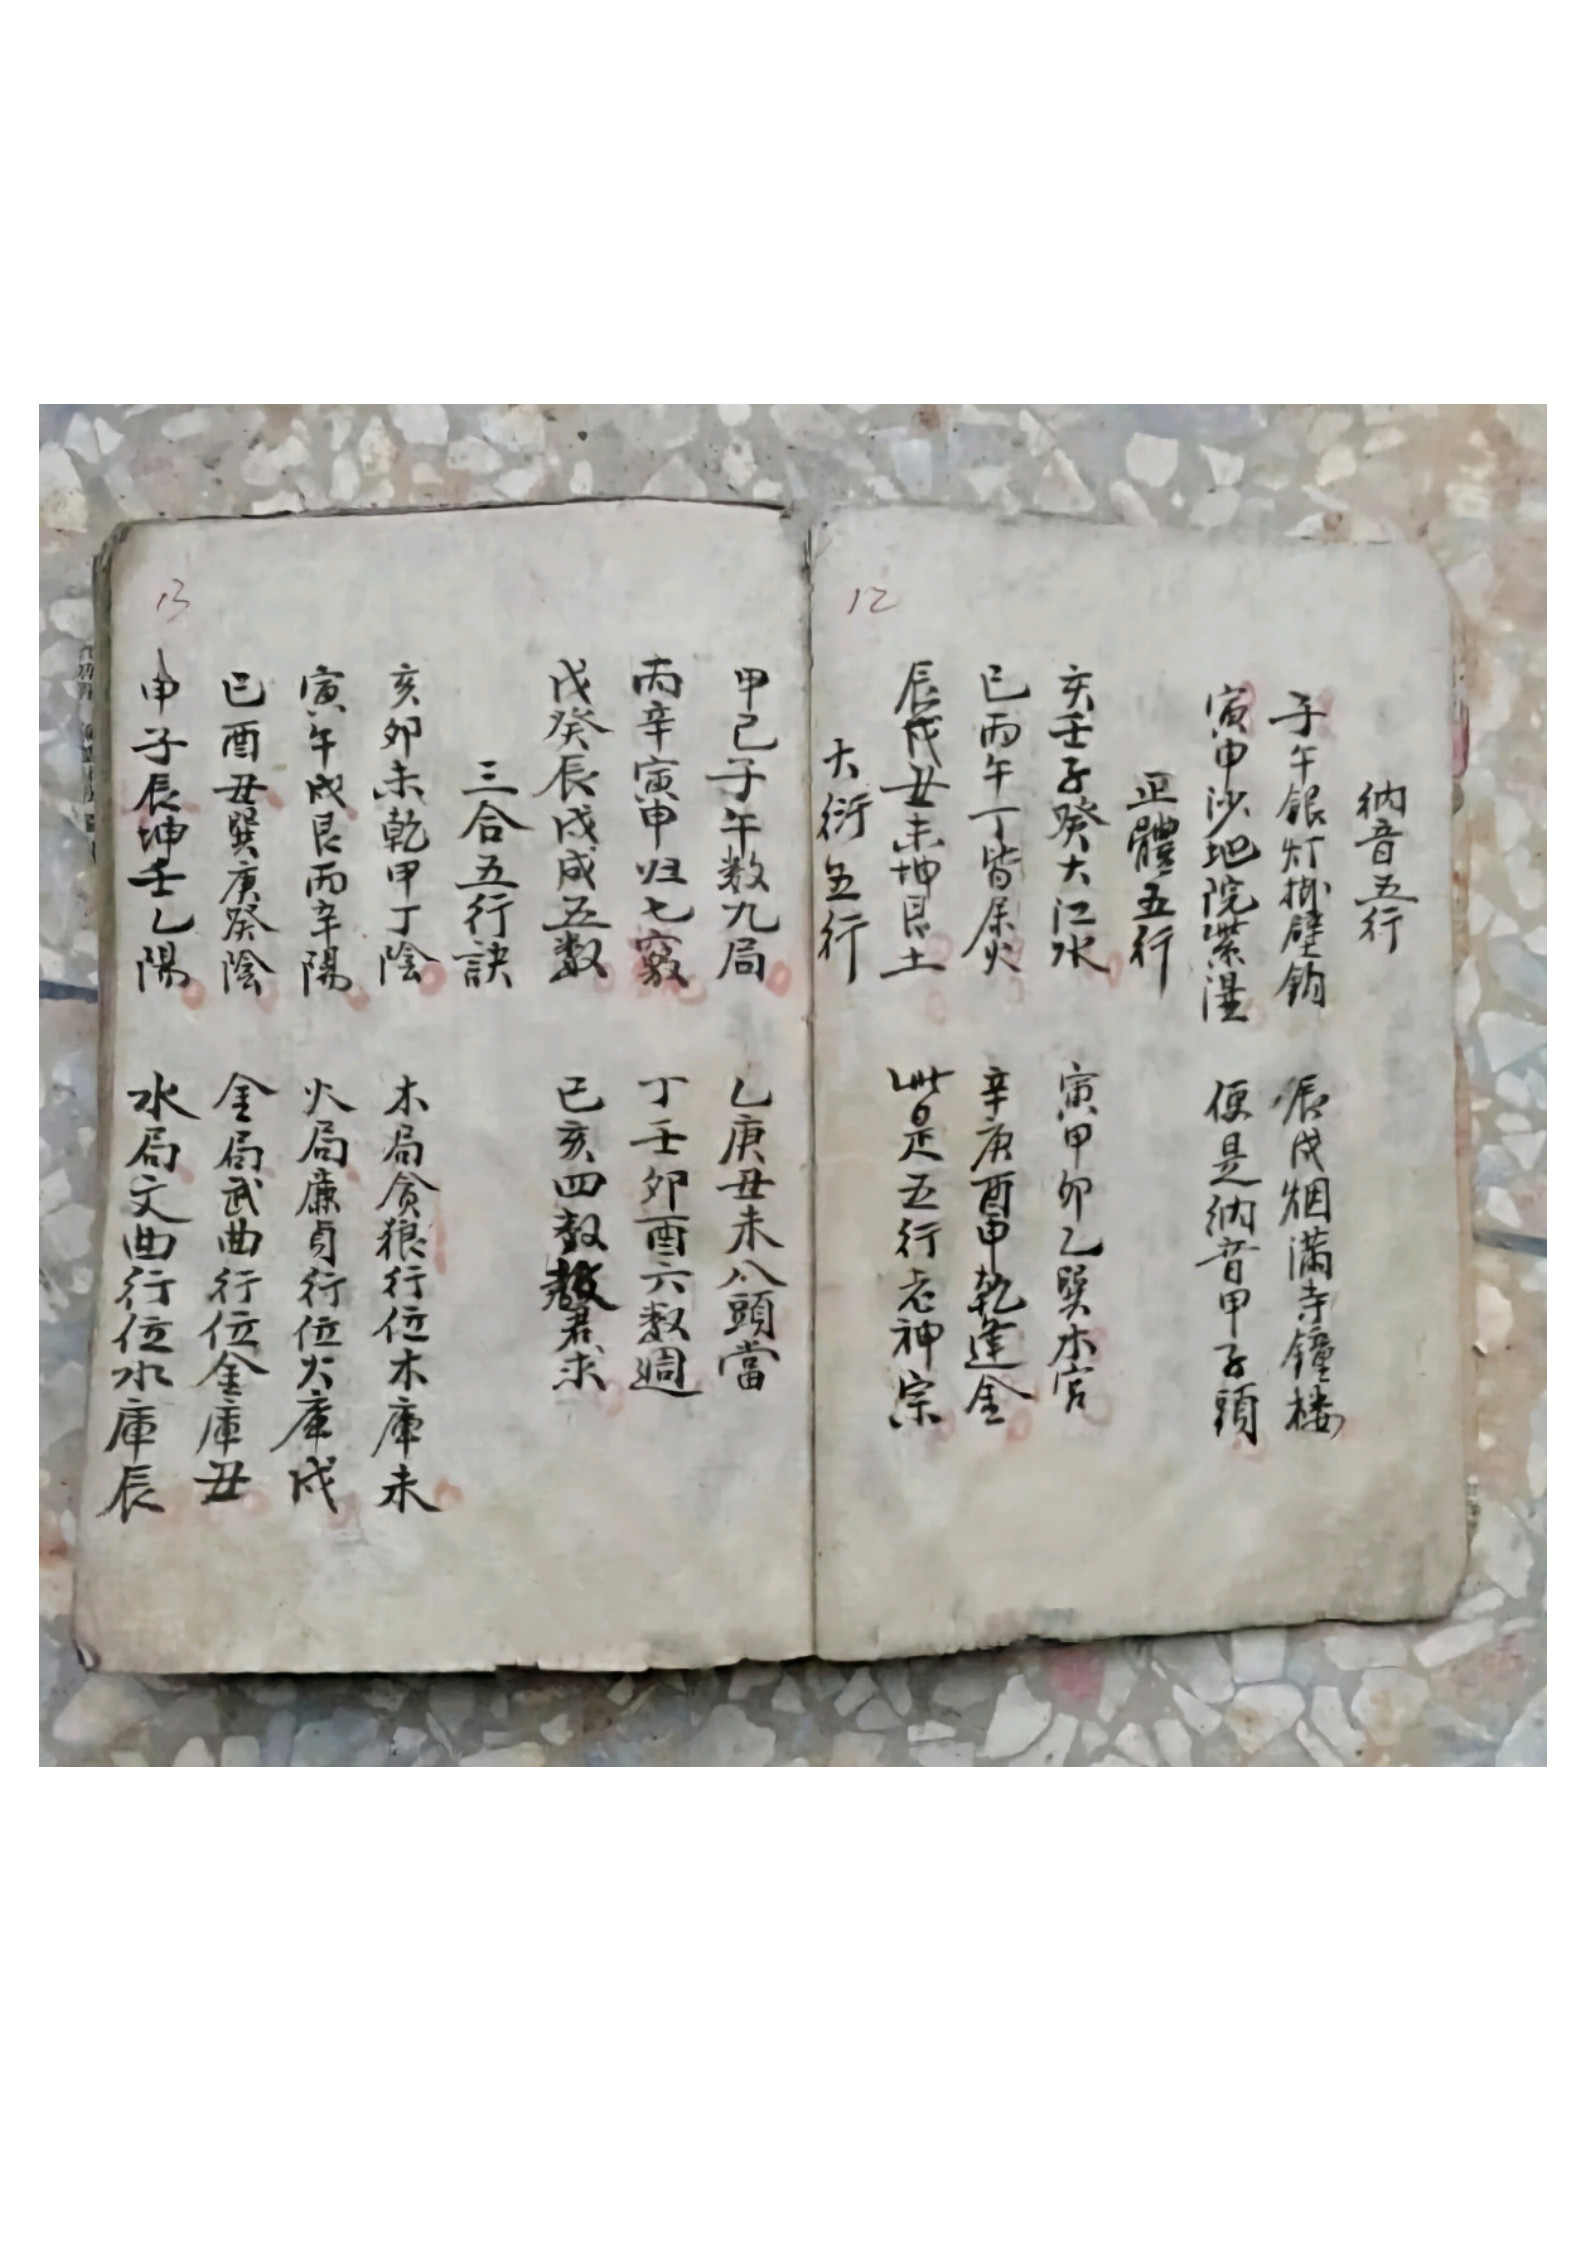 12
納音五行
子午銀灯掛壁鈎
辰戌烟滿寺鐘楼
寅申沙地院縈濕
便是納音甲子頭
正體五行
亥壬子癸大江水
寅甲卯乙巽木宮
巳丙午丁皆属火
辛庚酉申乾逢金
辰戌丑未坤艮土
此是五行老神宗
大衍五行
13
甲己子午数九局
乙庚丑未八頭當
丙辛寅申归七竅
丁壬卯酉六数週
戊癸辰戌成五数
巳亥四数教君求
三合五行訣
亥卯未乾甲丁陰
木局贪狼行位木庫未
寅午戌艮丙辛陽
火局廉貞行位火庫戌
巳酉丑巽庚癸陰
金局武曲行位金庫丑
申子辰坤壬乙陽
水局文曲行位水庫辰